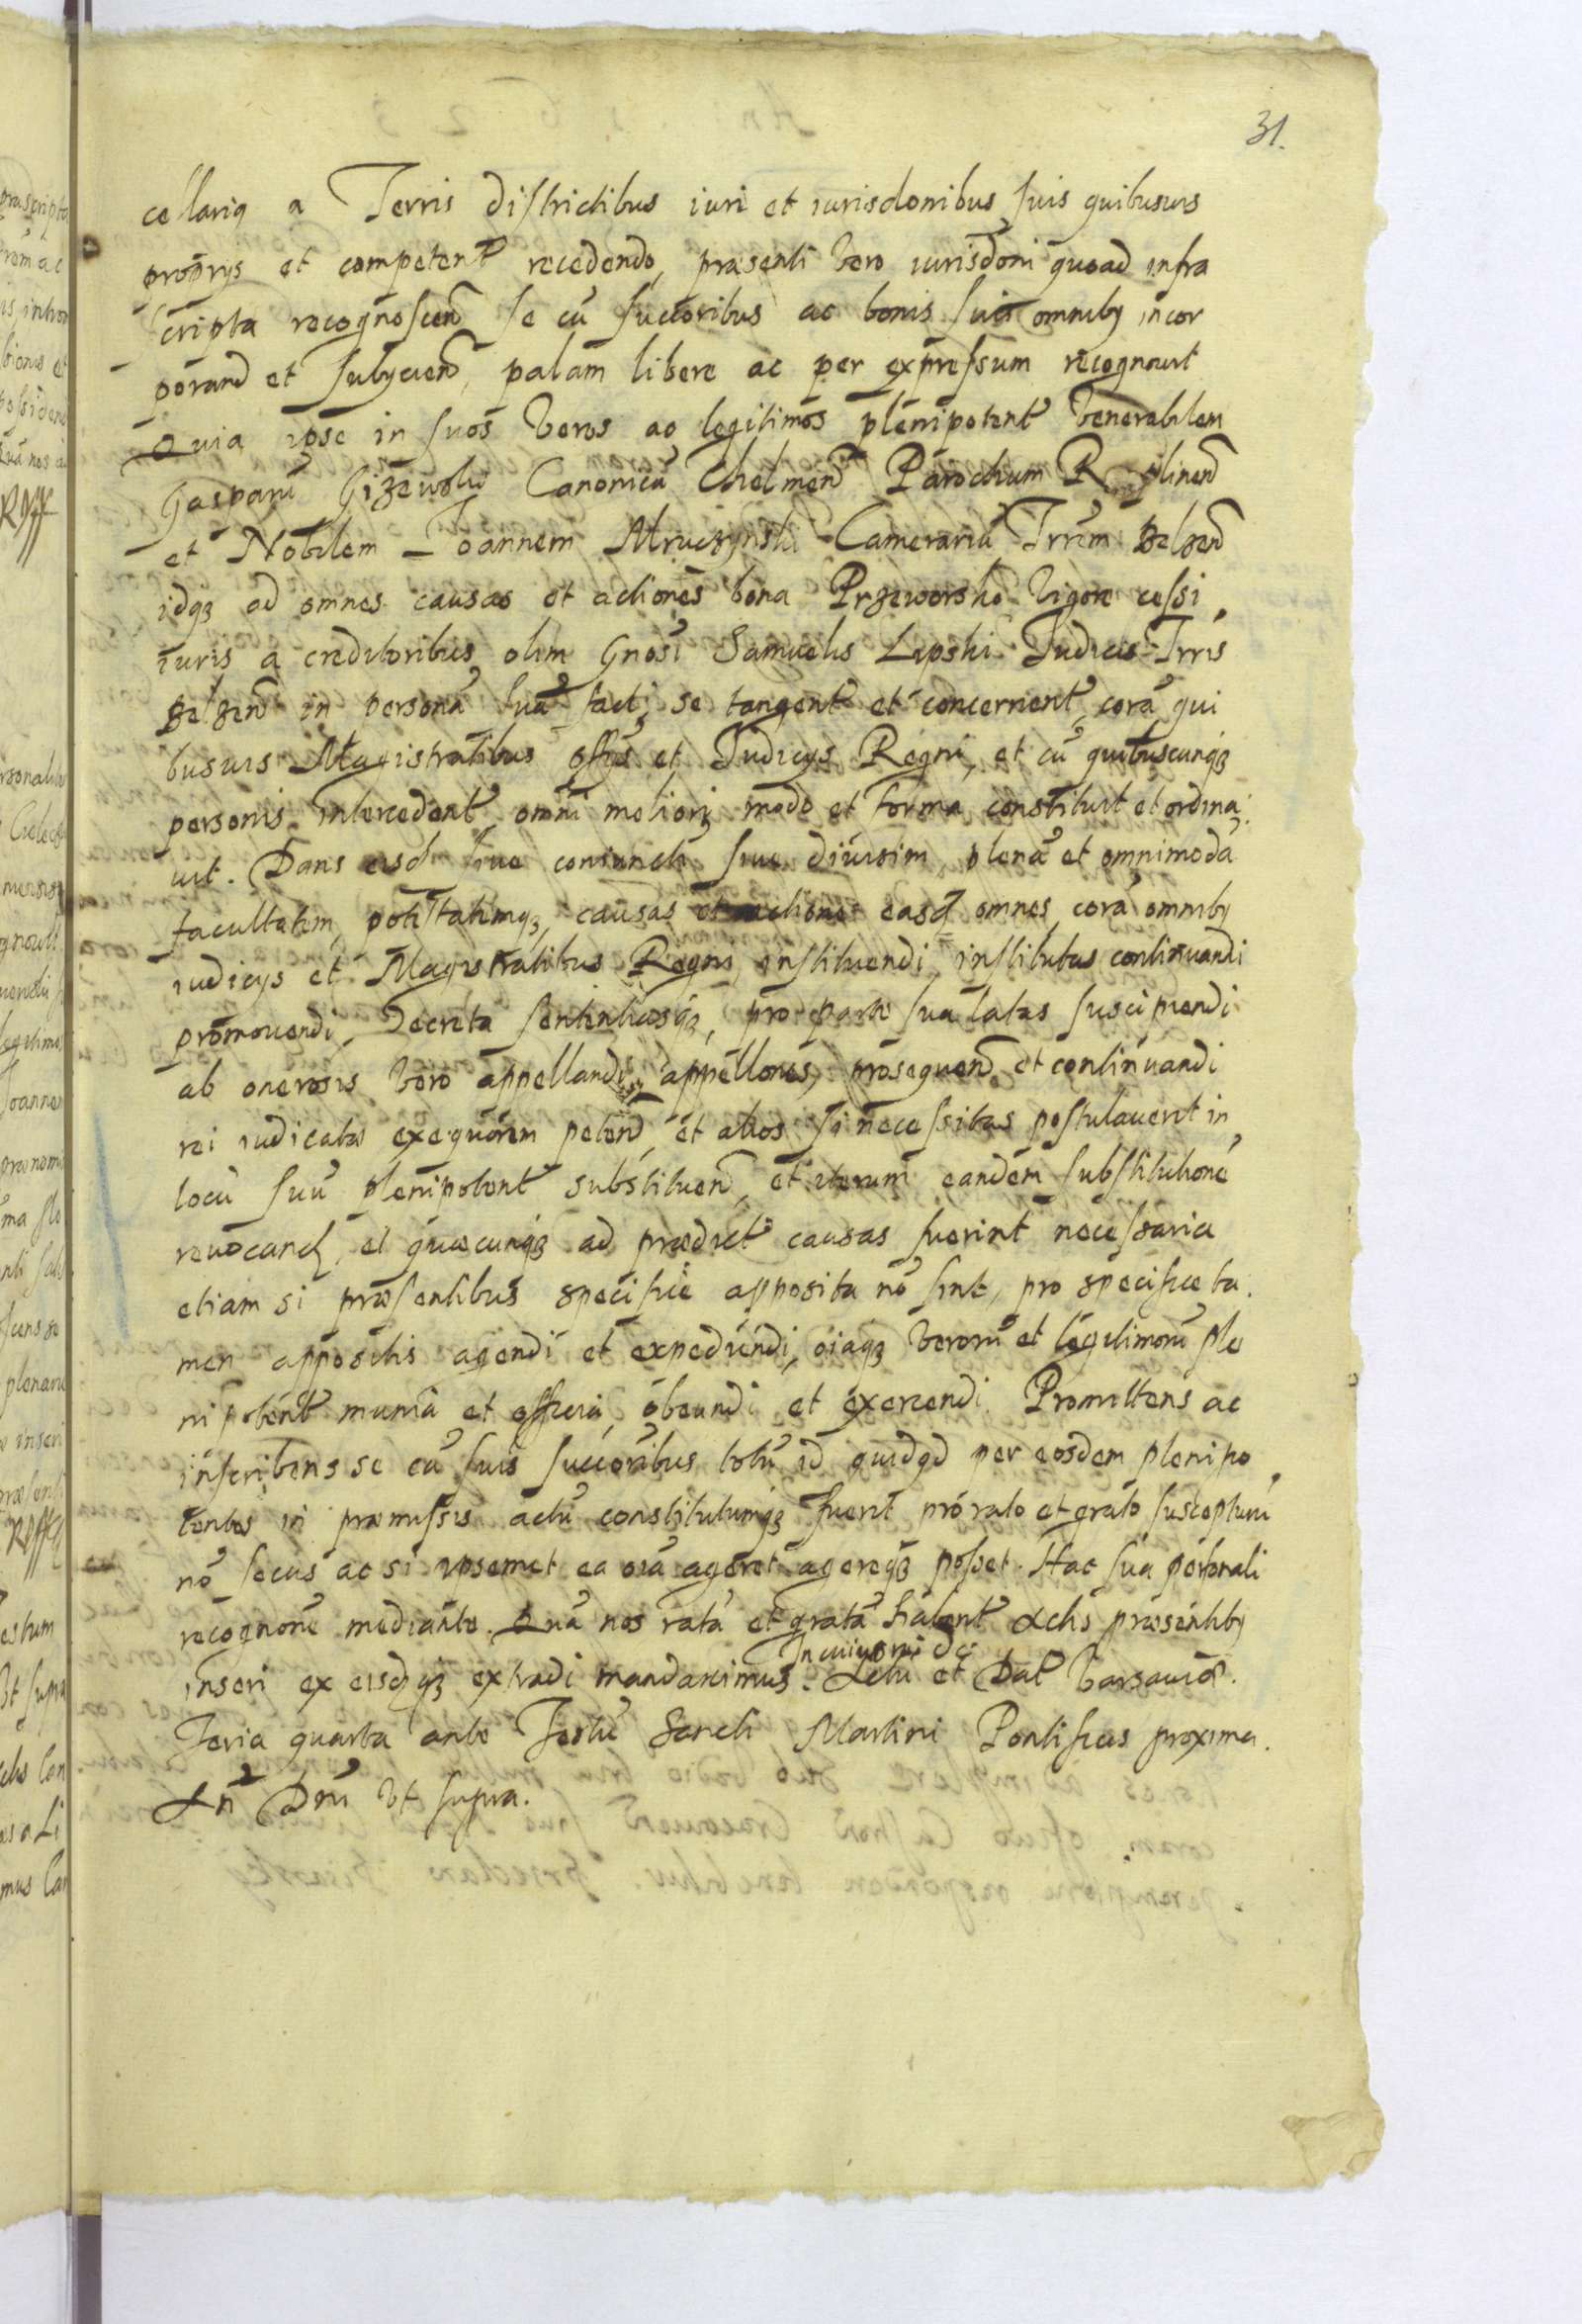 31.
cellariq a Terris districtibus iuri et iurisdonibus suis quibusuis
proprys et competent recedendo, praesenti vero iurisdoni quoad infra
scripta recognoscen se cū succoribus ac bonis suis omnibq incor
porand et subycien, palam libere ac per expressum recognouit
Quia ipse in suos veros ac legitimos plenipotent Venerabilem
Gasparū Gizewski Canonicū Chelmen Parochum
et Nobilem Joannem Mruczynski Camerariū Trrem Belzen
idqз ad omnes causas et actiones bona Przeworsko Vigore cessi
iuris a creditoribus olim Gnosi Samuelis Lipski Judicis Trris
Belzen in personā suā facti, se tangent et concernent, corā qui
busuis Magistratibus offys et Judicys Regni, et cū quibuscunqз
personis intercedent, omni meliori modo et forma constituit et ordina
uit. Dans eisd siue coniunctī siue diuisim, plenā et omnimodā
facultatem, potestatemqз, causas et actiones easd omnes corā omnibq
iudicys et Magistratibus Regni instituendi, institutas continuandi
promouendi, Decreta sententiasqз, pro parte sua latas suscipiendi
ab onerosis vero appellandi, appellones, prosequend et continuandi
rei iudicatae exequōrem petend, et alios si necessitas postulauerit in
locū suū plenipotent substituend, et iterum eandem substitutionē
reuocand, et quaecunqз ad praedict causas fuerint necessaria
etiam si praesentibus specifice apposita nō sint, pro specifice ta
men appositis agendi et expediendi, oiaqз verorū et legitimorū ple
nipotent munia et officia, obeundi et exercendi. Promittens ac
inscribens se cū suis succoribus totū id quidqd per eosdem plenipo
tentes in praemissis actū constitutumqз fuerit pro rato et grato suscepturū
nō secus ac si ipsemet ea oiā ageret agereqз posset. Hac sua personali
recognone mediante. Quā nos ratā et gratā habent Actis praesentibq
In cuius rei &c
inseri ex eisdqз extradi mandauimus. Actū et Dat Varsauiae.
Feria quarta ante Festū Sancti Martini Pontificis proxima.
An Dni Vt supra.